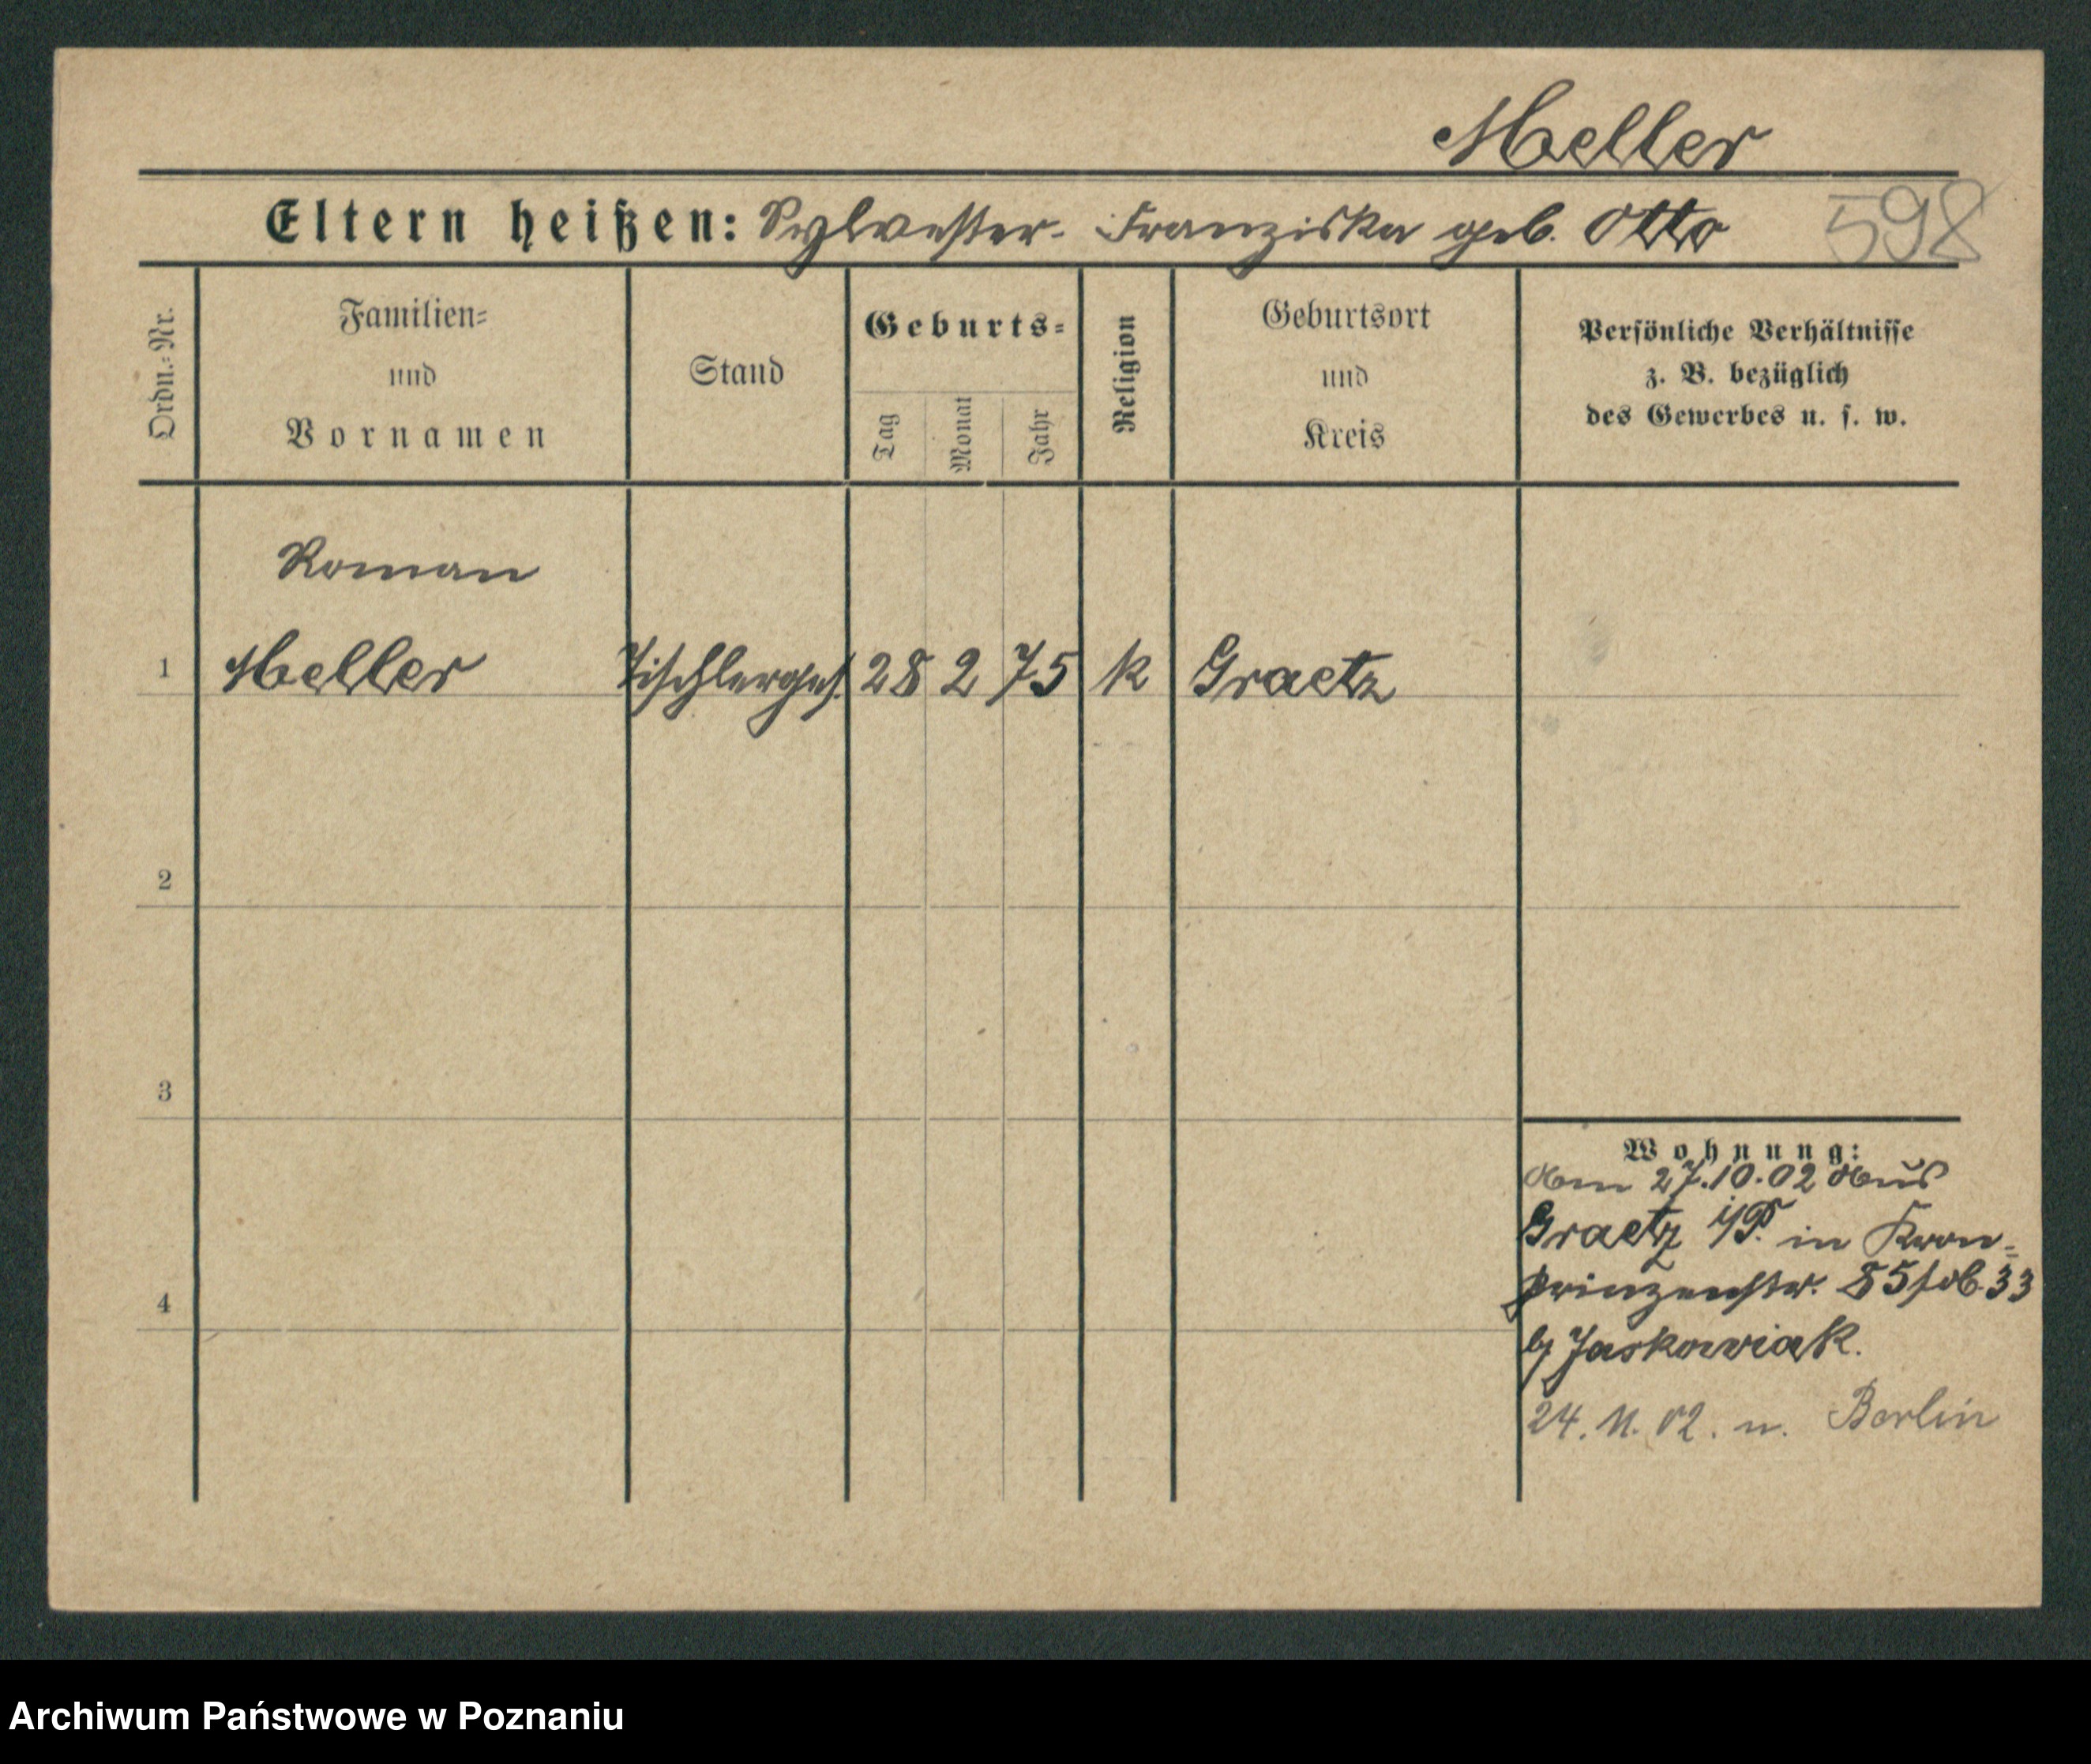 Meller
Eltern heißen: Sylvester. Franziska geb. Otto
598
Ordn.=Nr.
Familien=
und
Vornamen
Stand
Geburts=
Tag
Monat
Jahr
Religion
Geburtsort
und
Kreis
Persönliche Verhältnisse
z. B. bezüglich
des Gewerbes u. s. w.
Roman
1 Meller Tischlerges. 28 2 75 k Graetz
2
3
4
Wohnung:
Am 27.10.02 aus
Graetz i/P. in Kron=
prinzenstr. 85
b/ Jaskowiak.
24. 11. 02. n. Berlin
Archiwum Państwowe w Poznaniu